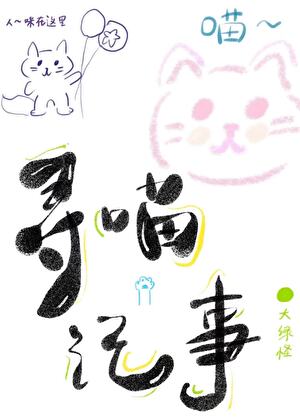 人~咪在这里
喵~
寻喵
记事
大绿怪